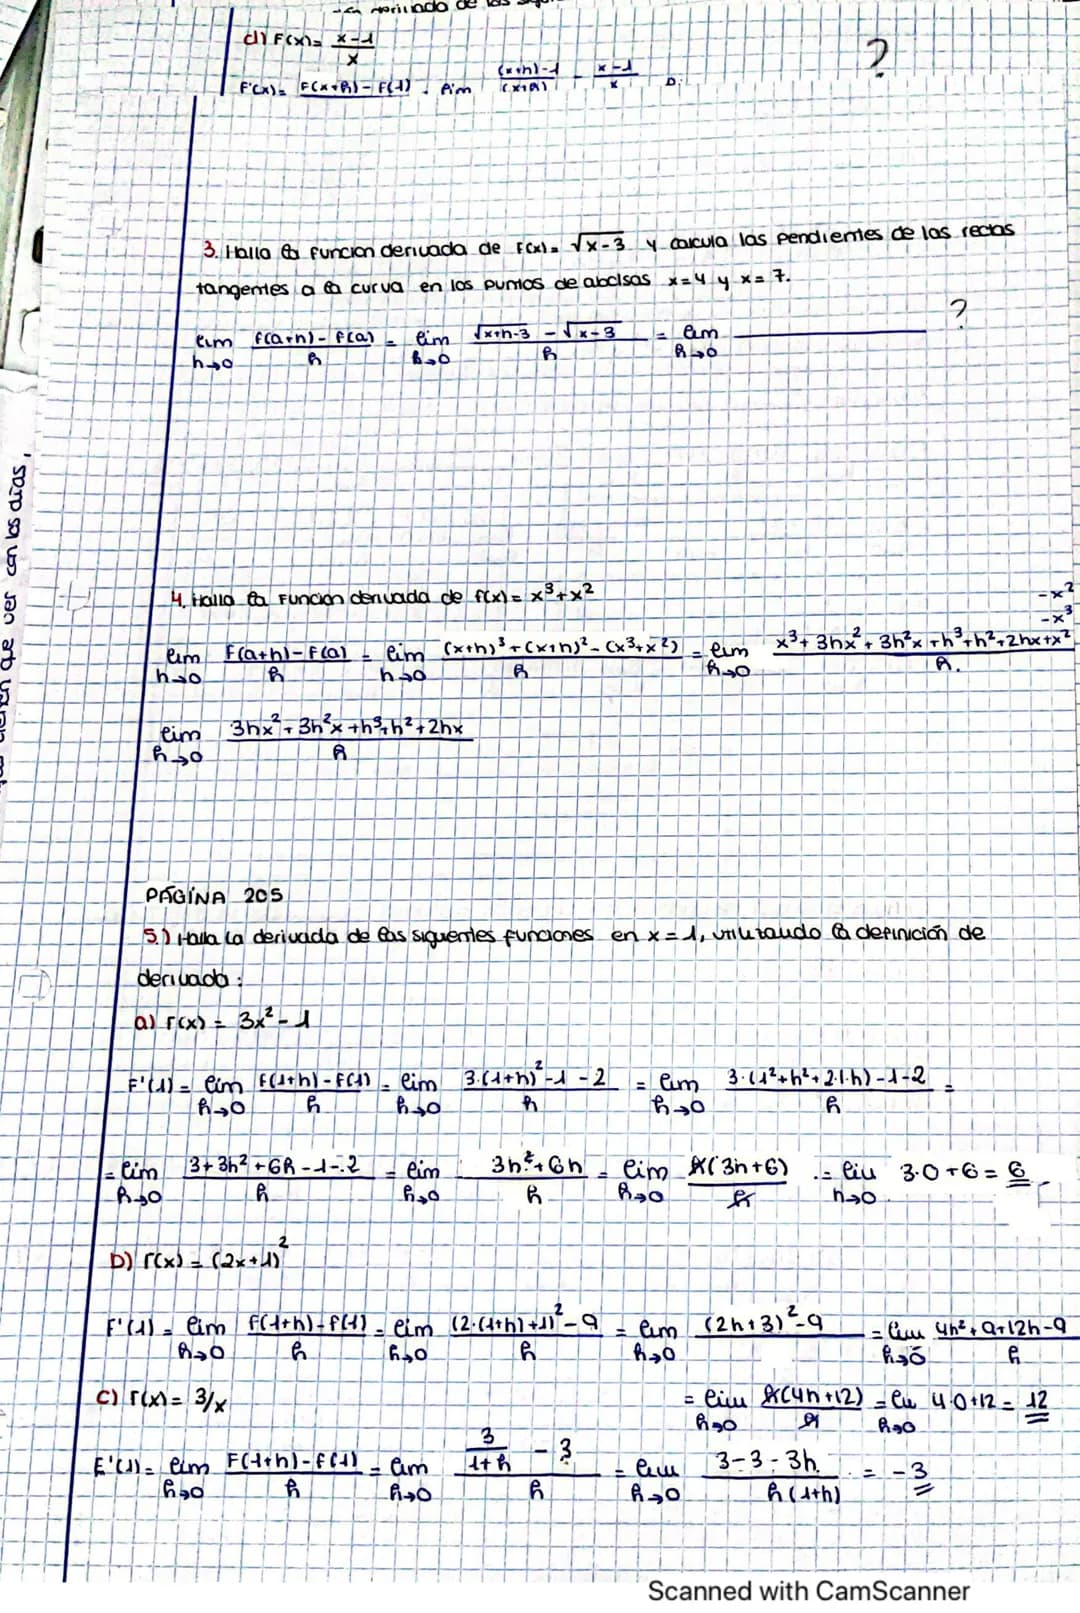 derivada de las
d) F(x) = x-1/x
?
F'(x) = F(x+h) - F(1) . lim (x+h)-1/(x+h) - x-1/x
3. Halla la funcion derivada de F(x) = √x-3 y calcula las pendientes de las rectas
tangentes a la curva en los puntos de abcisas x=4 y x=7.
lim h→0 f(a+h) - f(a)/h = lim h→0 √x+h-3 - √x-3/h = lim h→0 ?
4. Halla la Funcion derivada de f(x) = x³+x²
-x²
-x³
lim h→0 F(a+h)-F(a)/h = lim h→0 (x+h)³+(x+h)²-(x³+x²)/h = lim h→0 x³+3hx²+3h²x+h³+h²+2hx+x²/h.
lim h→0 3hx²+3h²x+h³+h²+2hx/h
que ver con los días,
PÁGINA 205
5.) Halla la derivada de las siguientes funciones en x=1, utilizando la definición de
derivada:
a) f(x) = 3x²-1
F'(1) = lim h→0 F(1+h)-F(1)/h = lim h→0 3·(1+h)²-1-2/h = lim h→0 3·(1²+h²+2·1·h)-1-2/h =
= lim h→0 3+3h²+6h-1-2/h = lim h→0 3h²+6h/h = lim h→0 h(3h+6)/h = lim h→0 3·0+6 = 6
b) f(x) = (2x+1)²
F'(1) = lim h→0 F(1+h)-F(1)/h = lim h→0 (2·(1+h)+1)²-9/h = lim h→0 (2h+3)²-9 = lim h→0 4h²+9+12h-9/h
= lim h→0 h(4h+12)/h = lim h→0 4·0+12 = 12
c) f(x) = 3/x
F'(1) = lim h→0 F(1+h)-F(1)/h = lim h→0 3/1+h - 3/h = lim h→0 3-3-3h/h(1+h) = -3
Scanned with CamScanner